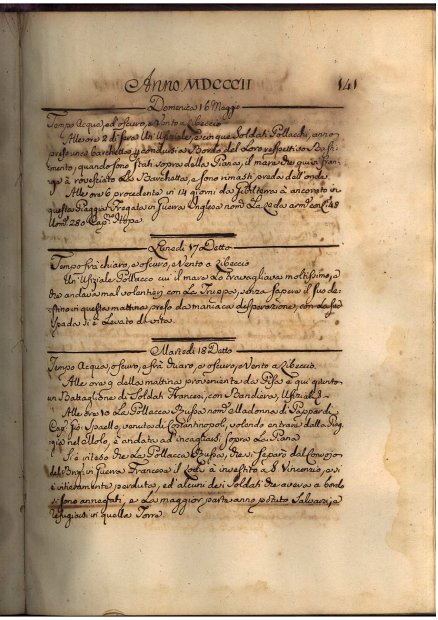 Anno MDCCCII 141
Domenica 16 Maggio
Tempo Acqua, ed oscuro, e Vento a Libeccio
Alle ore 2 di sera Un' Ufiziale, e cinque Soldati Pollacchi, anno
preso una Barchetta p condursi a Bordo del Loro respettivo Basti-
mento, quando sono stati sopra della Piana, il mare che qui in fran-
ge à rovesciato La Barchetta, e sono rimasti preda dell'onde.
Alle ore 6 procedente in 14 giorni da Gibilterra à ancorato in
questa Piaggia Fregata in Guerra Inglese nom.
Uom. 280 Cap.
Lunedi 17 Detto
Tempo frà chiaro, e oscuro, e Vento a Libeccio
Un' Ufiziale Pollacco cui il mare Lo travagliava moltissimo, e
che andava mal volentieri con La Truppa, senza sapere il suo de-
stino in questa mattina preso da maniaca disperazione, con La sua
Spada si è Levato di vita.
Martedi 18 Detto
Tempo Acqua, oscuro, e frà chiaro, e oscuro, e Vento a Libeccio.
Alle ore 9 della mattina proveniente da Pisa è qui giunto
un Battaglione di Soldati Francesi, con Bandiera, Ufiziali
Alle ore 10 La Pollacca Russa nom. Madonna di
Cap. venuta di Costantinopoli, volendo entrare dalla Piag-
gia nel Molo, è andata ad incagliarsi sopra La Piana
Si è inteso che La Pollacca Russa, che si separò dal Convojo
del Brig in Guerra Francese il Lodi à investito a S. Vincenzio, e si
è interamente perduta, ed alcuni dei Soldati che aveva a bordo
si sono annegati, e La maggior parte anno potuto Salvarsi, e
refugiarsi in quella Torre.